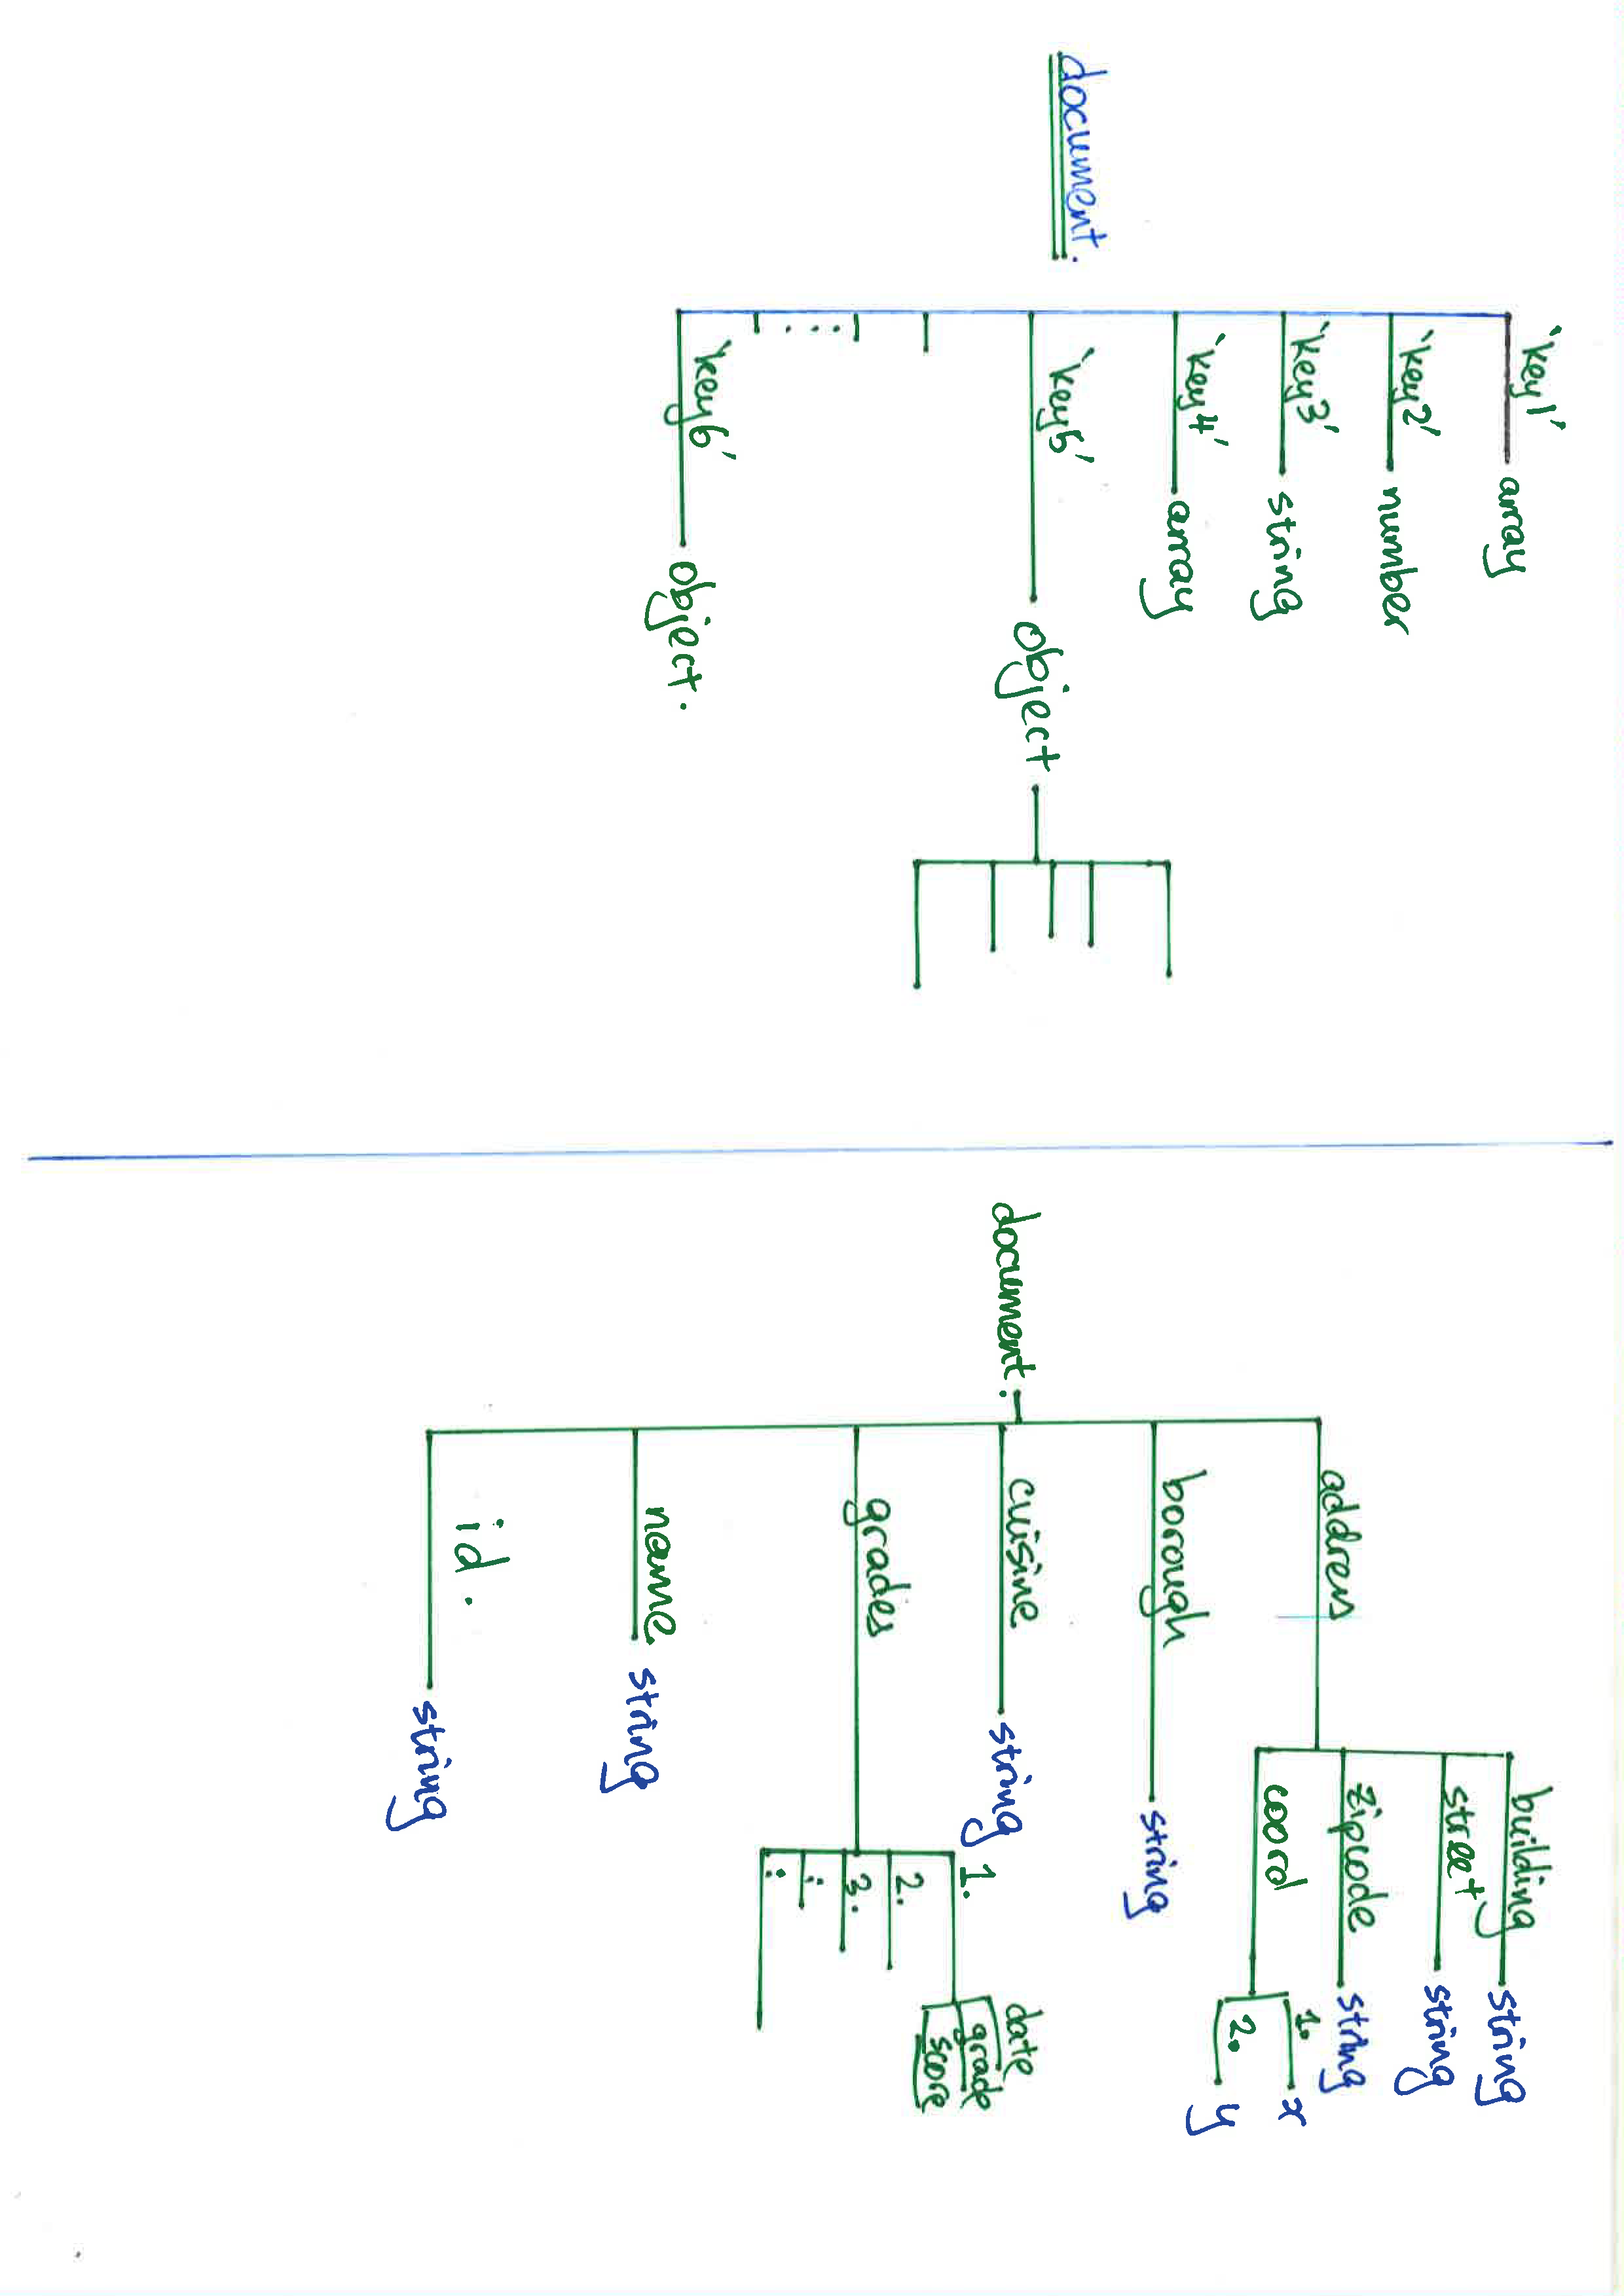 document.
'key1' array
'key2' number
'key3' string
'key4' array
'key5' object
'key6' object.
document.
address
building string
street string
zipcode string
coord
1. x
2. y
borough string
cuisine string
grades
1.
date
grade
score
2.
3.
name string
id. string